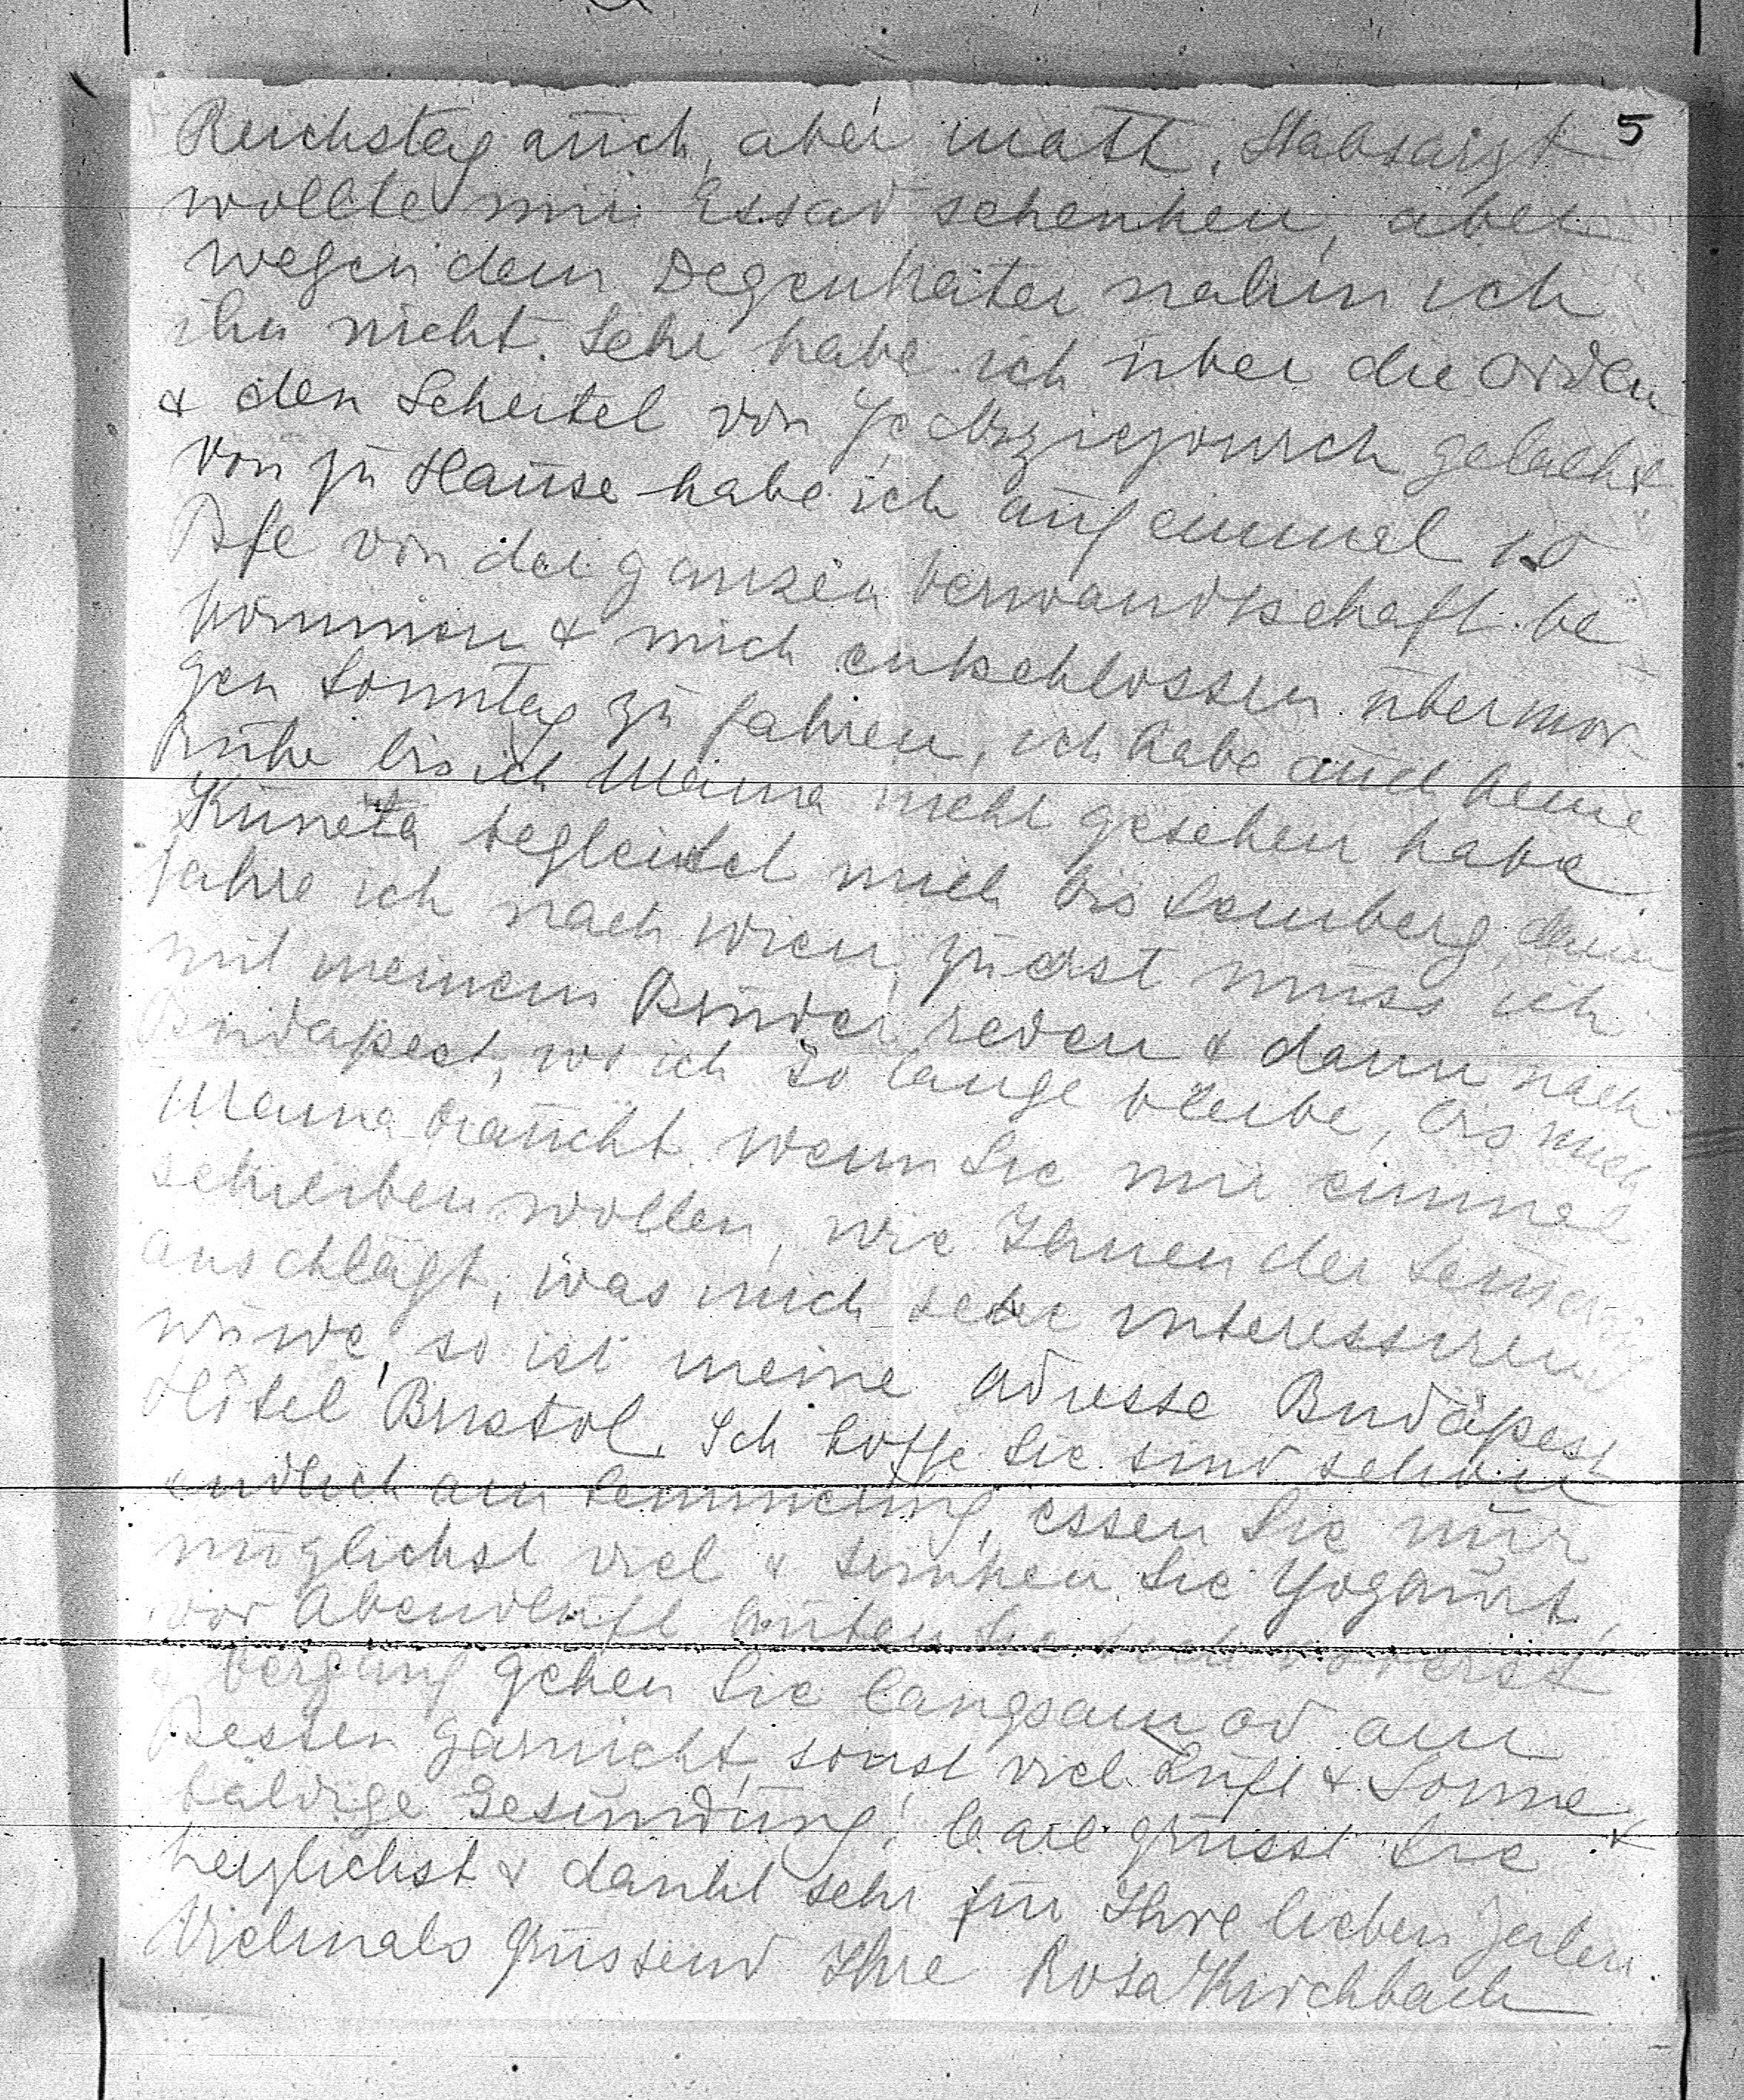 5
Reichstag auch, aber matt. Stabsarzt
wollte mir Essad schenken, aber
wegen dem Degenhater nahm ich
ihn nicht. Sehr habe ich über die Orden
& den Scheitel von gelacht
Von zu Hause habe ich auf einmal 10
Bfe von der ganzen Verwandtschaft be
kommen & mich entschlossen übermor-
gen Sonntag zu fahren, ich habe auch keine
Ruhe bis ich Mama nicht gesehen habe.
begleitet mich bis Lemberg, dann
fahre ich nach Wien, zuerst muss ich
mit meinem Bruder reden & dann nach
Budapest, wo ich so lange bleibe, bis mich
Mama braucht. Wenn Sie mir einmal
schreiben wollen, wie Ihnen der
anschlägt, was mich sehr interessiren
würde, so ist meine Adresse Budapest
Hôtel Bristol. Ich hoffe Sie sind schon
endlich am Semmering, essen Sie nur
möglichst viel & trinken Sie Yogaurt,
vor Abendluft hüten Sie sich vorerst
& Bergauf gehen Sie langsam od am
Besten garnicht, sonst viel Luft & Sonne &
baldige Gesundung! Carl grüsst Sie
herzlichst & dankt sehr für Ihre lieben Zeilen.
Vielmals grüssend Ihre Rosa Kirchbach